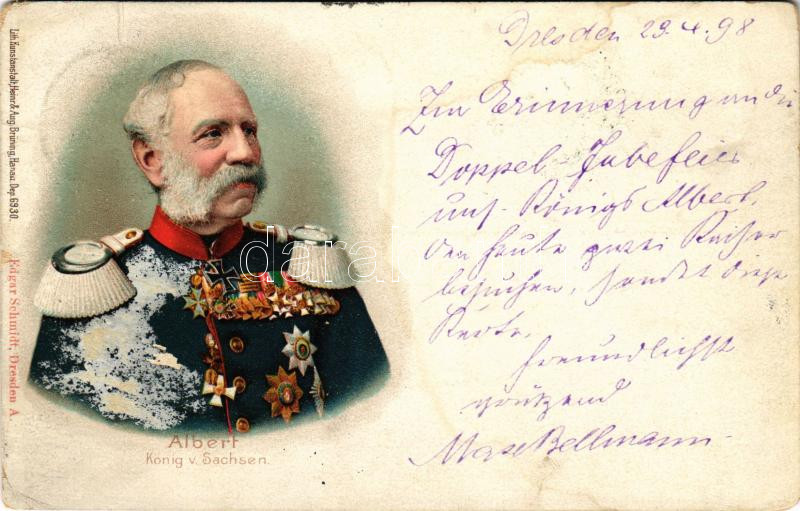 Lith. Kunstanstalt, Heinr. & Aug. Brüning, Hanau. Dep. 6930.
Edgar Schmidt, Dresden A
Albert
König v. Sachsen.
darabanth
Dresden 23.4.98
Zur Erinnerung an die
Doppel-Jubelfeier
uns. Königs Albert,
den heute zwei Kaiser
besuchen, sendet diese
Karte,
freundlichst
grützend
Max Bellmann